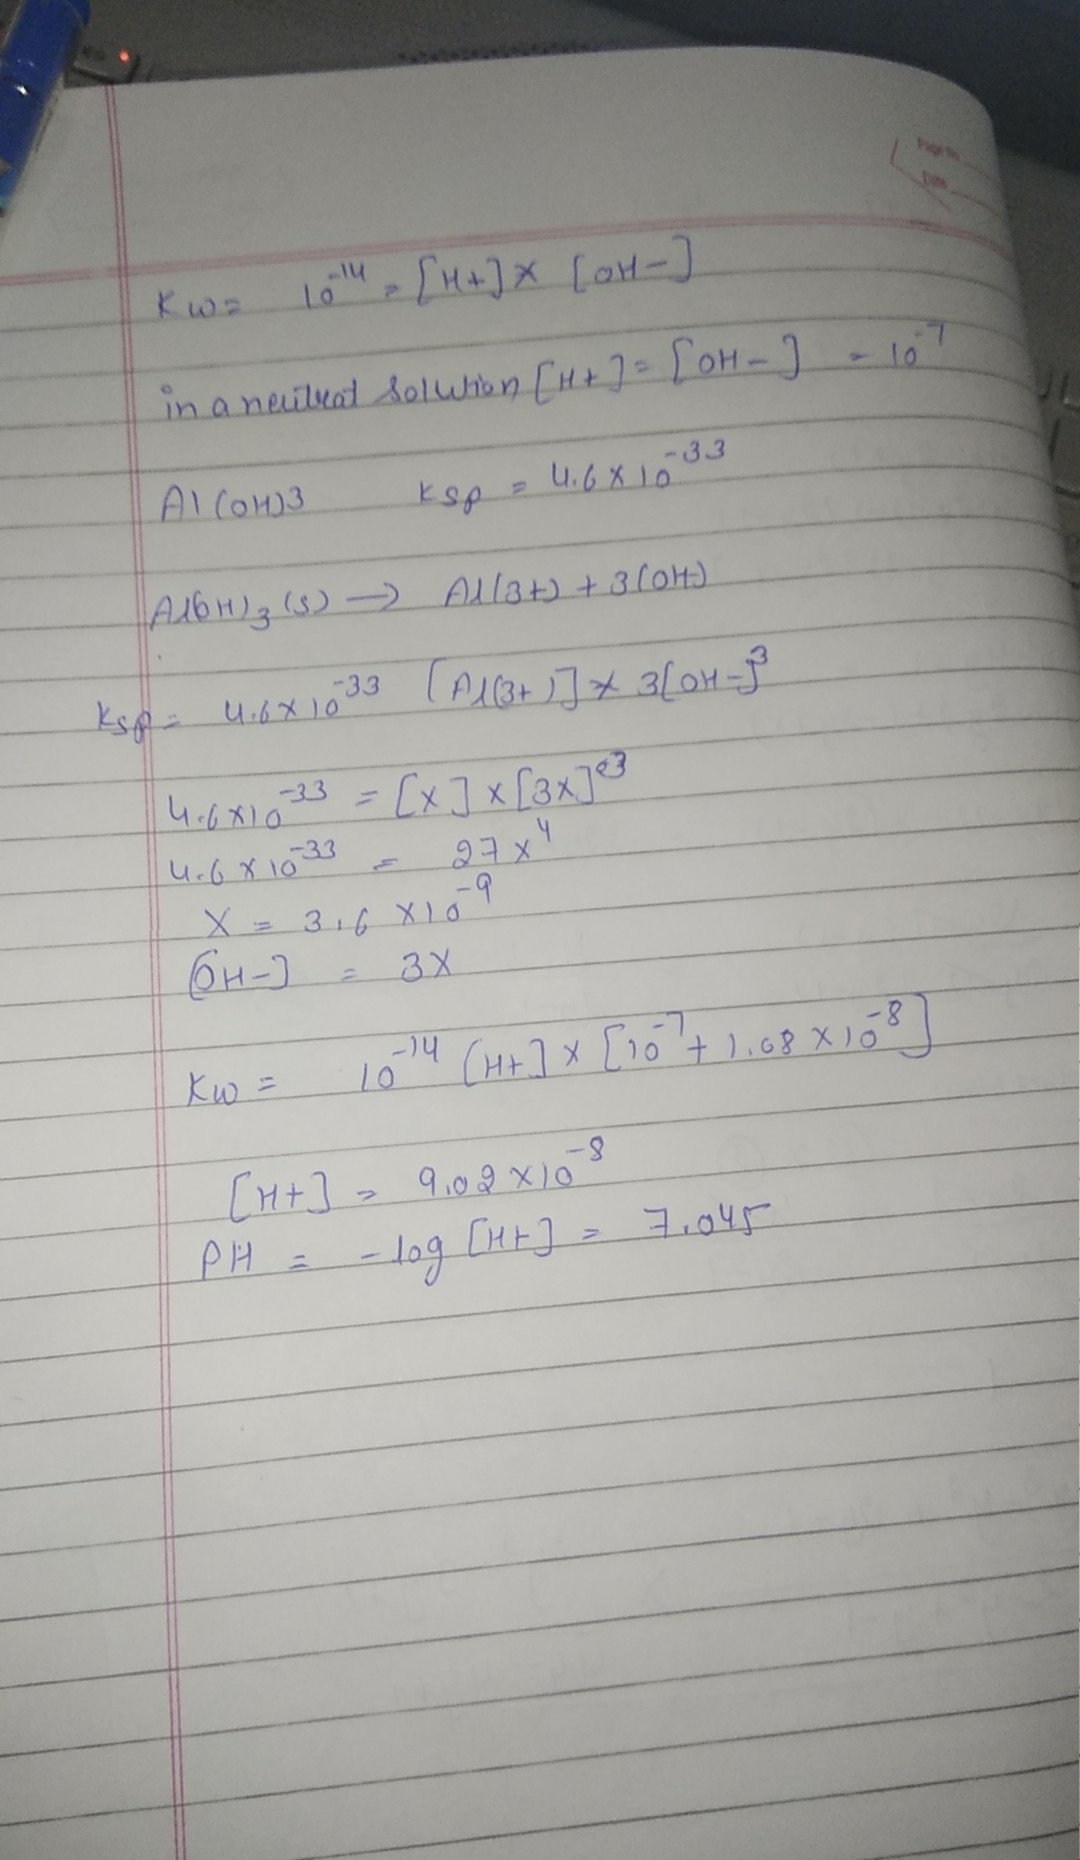 Page No.
Date
Kw = 10⁻¹⁴ = [H+] × [OH-]
in a neutral solution [H+] = [OH-] = 10⁻⁷
Al(OH)3 Ksp = 4.6 × 10⁻³³
Al(OH)₃(s) → Al(3+) + 3(OH-)
Ksp = 4.6 × 10⁻³³ [Al(3+)] × 3[OH-]³
4.6 × 10⁻³³ = [x] × [3x]³
4.6 × 10⁻³³ = 27x⁴
X = 3.6 × 10⁻⁹
[OH-] = 3X
Kw = 10⁻¹⁴ [H+] × [10⁻⁷ + 1.08 × 10⁻⁸]
[H+] = 9.02 × 10⁻⁸
PH = -log [H+] = 7.045